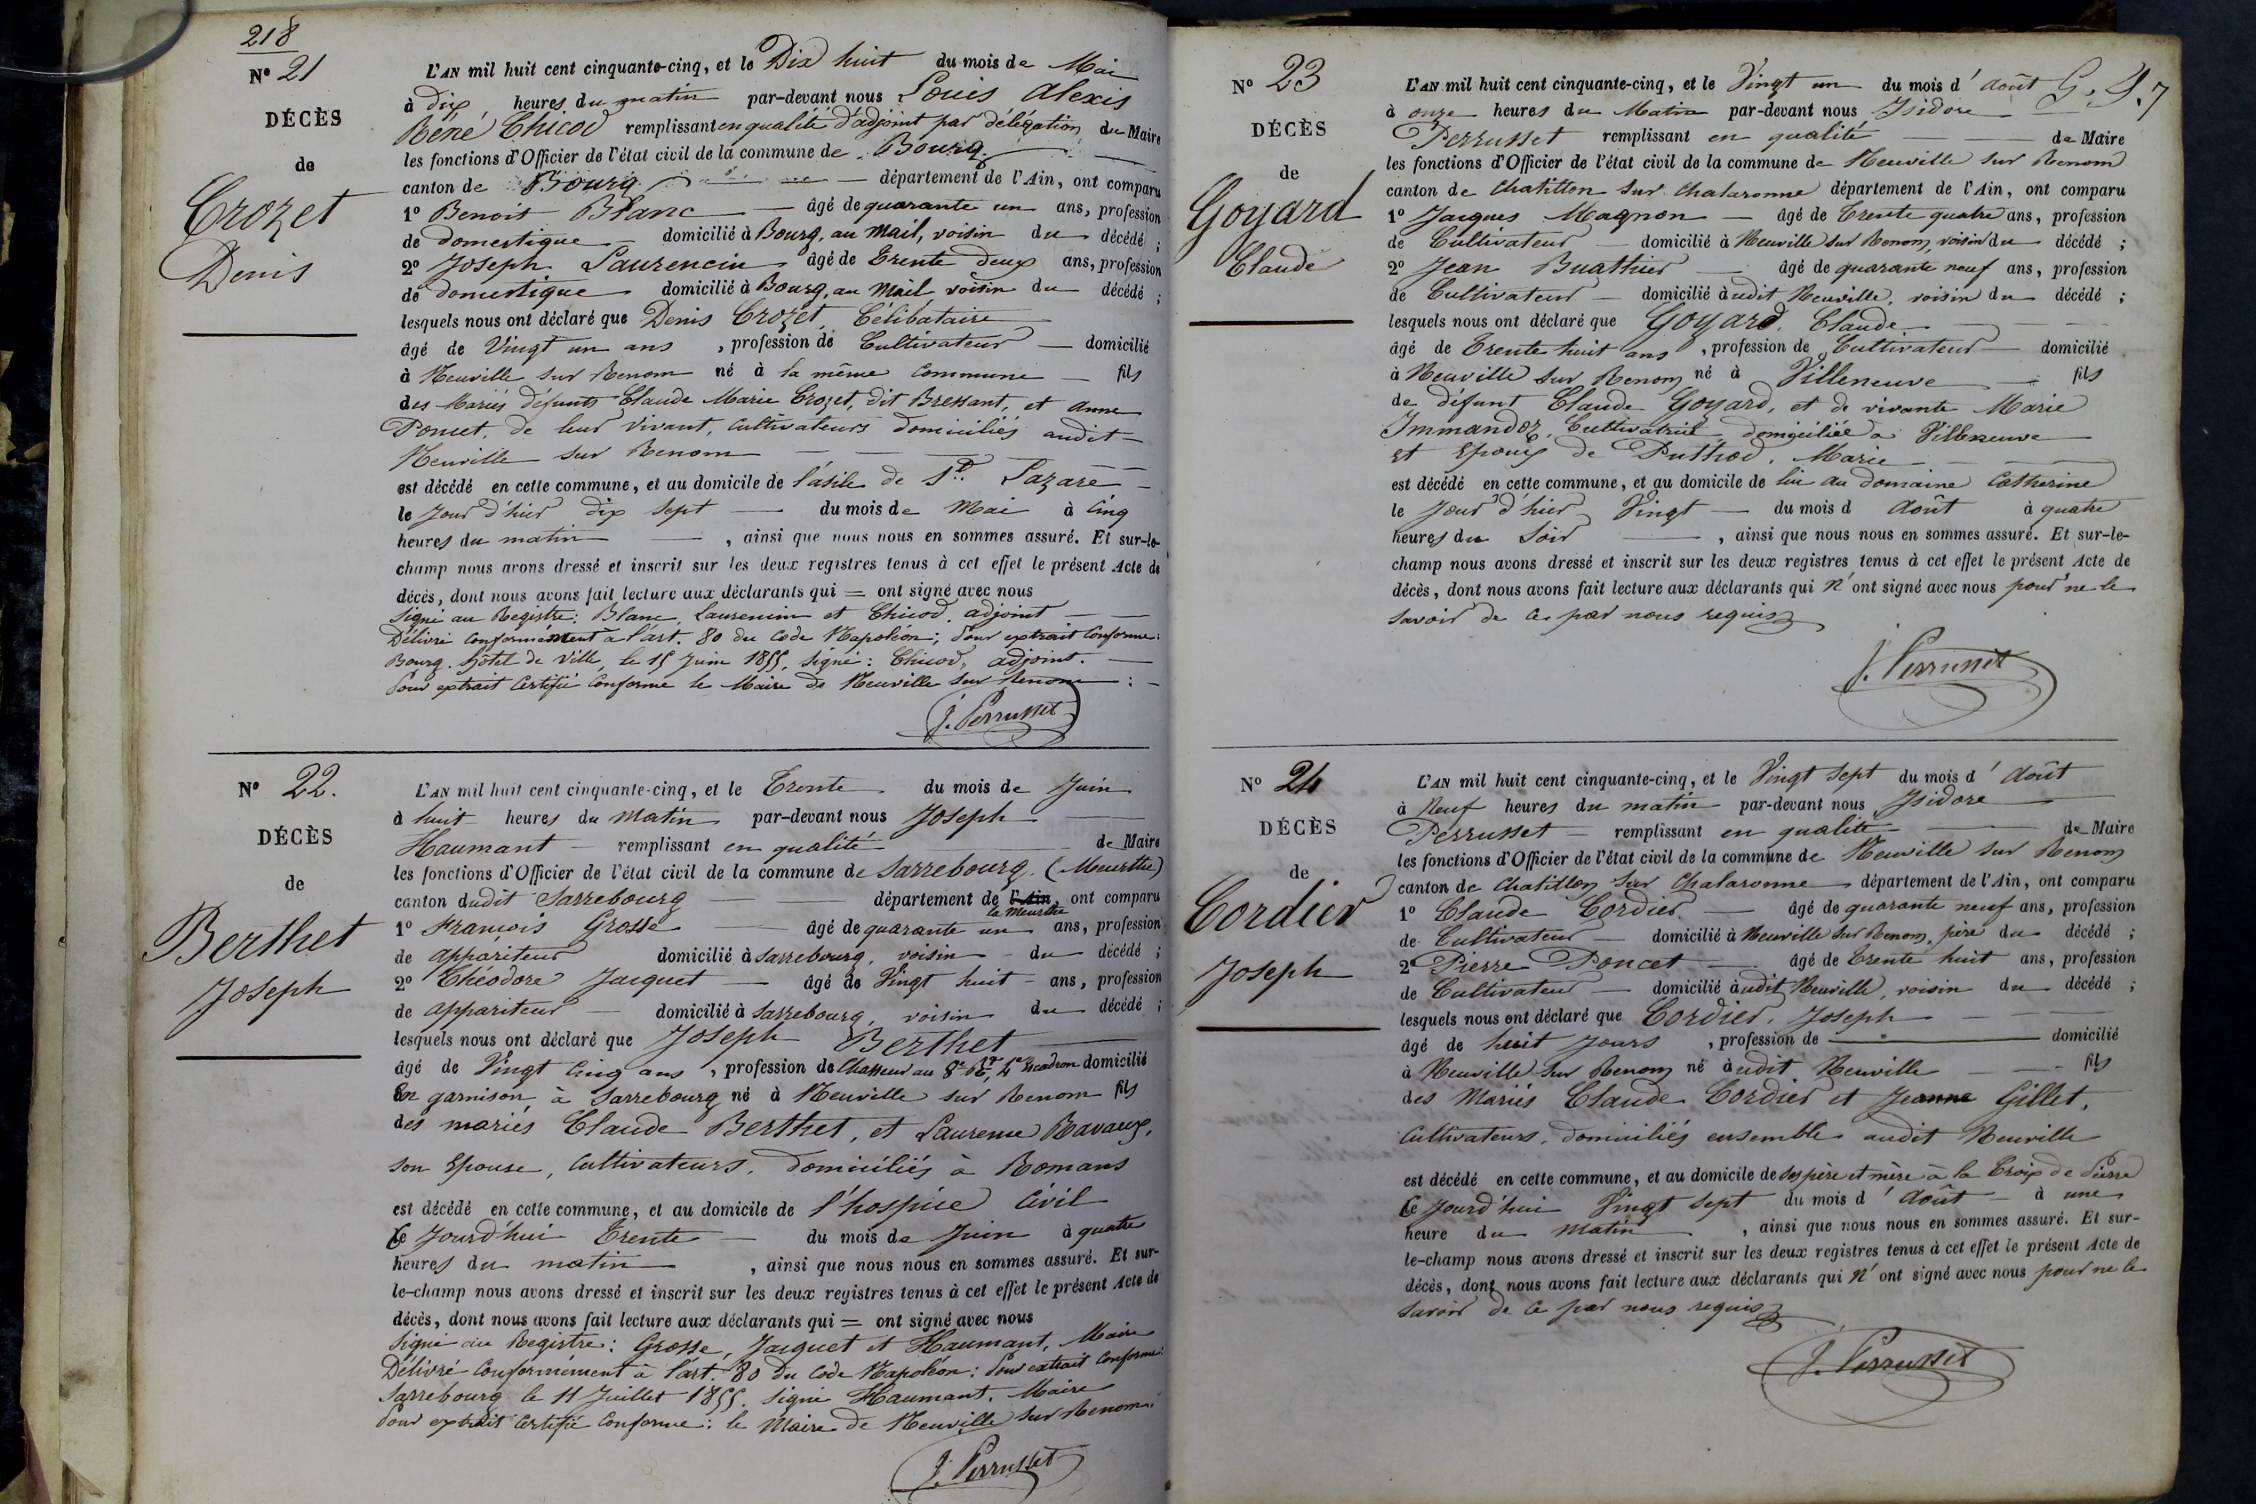 218
N° 21
DÉCÈS
de
Crozet
Denis
L'AN mil huit cent cinquante-cinq, et le Dix huit du mois de Mai
à dix heures du matin par-devant nous Louis Alexis
Réné Chicod remplissant en qualité d'adjoint par délégation du Maire
les fonctions d'Officier de l'état civil de la commune de Bourg
canton de Bourg département de l'Ain, ont comparu
1° Benoit Blanc âgé de quarante un ans, profession
de domestique domicilié à Bourg, au Mail, voisin du décédé ;
2° Joseph Laurencin âgé de Trente deux ans, profession
de domestique domicilié à Bourg, au Mail voisin du décédé ;
lesquels nous ont déclaré que Denis Crozet, Célibataire
âgé de Vingt un ans , profession de Cultivateur domicilié
à Neuville sur Renom né à la même commune fils
des Mariés défunts Claude Marie Crozet, dit Bressant, et Anne
Poncet, de leur vivant, cultivateurs domiciliés audit
Neuville sur Renom
est décédé en cette commune, et au domicile de l'asile de St. Lazare
le jour d'hier dix sept du mois de Mai à Cinq
heures du matin , ainsi que nous nous en sommes assuré. Et sur-le-
champ nous avons dressé et inscrit sur les deux registres tenus à cet effet le présent Acte de
décès, dont nous avons fait lecture aux déclarants qui = ont signé avec nous
Signé au Registre: Blanc, Laurencin et Chicod, adjoint
Délivré conformément à l'art. 80 du Code Napoléon; Pour extrait Conforme:
Bourg. Hôtel de Ville, le 15 Juin 1855, signé: Chicod, adjoint.
Pour extrait Certifié Conforme le Maire de Neuville sur Renom :
J. Perrusset
N° 22.
DÉCÈS
de
Berthet
Joseph
L'AN mil huit cent cinquante-cinq, et le Trente du mois de Juin
à huit heures du Matin par-devant nous Joseph
Haumant remplissant en qualité de Maire
les fonctions d'Officier de l'état civil de la commune de Sarrebourg. (Meurthe)
canton dudit Sarrebourg département de l'Ain, ont comparu
la Meurthe
1° François Grosse âgé de quarante un ans, profession
de appariteur domicilié à Sarrebourg, voisin du décédé ;
2° Théodore Jacquet âgé de Vingt huit ans, profession
de appariteur domicilié à Sarrebourg, voisin du décédé ;
lesquels nous ont déclaré que Joseph Berthet
âgé de Vingt Cinq ans , profession de Chasseur au 8e 4e Escadron domicilié
En garnison à Sarrebourg né à Neuville sur Renom fils
des mariés Claude Berthet, et Laurence Ravaux,
son Epouse, cultivateurs, domiciliés à Romans
est décédé en cette commune, et au domicile de l'hospice Civil
Ce Jourd'hui Trente du mois de Juin à quatre
heures du matin , ainsi que nous nous en sommes assuré. Et sur-
le-champ nous avons dressé et inscrit sur les deux registres tenus à cet effet le présent Acte de
décès, dont nous avons fait lecture aux déclarants qui = ont signé avec nous
Signé au Registre: Grosse, Jacquet et Haumant, Maire
Délivré Conformément à l'art. 80 du Code Napoléon: Pour extrait Conforme:
Sarrebourg le 11 Juillet 1855. Signé Haumant. Maire
Pour extrait Certifié Conforme: le Maire de Neuville sur Renom:
J. Perrusset
N° 23
DÉCÈS
de
Goyard
Claude
L'AN mil huit cent cinquante-cinq, et le Vingt un du mois d' Août
à onze heures du Matin par-devant nous Isidore
Perrusset remplissant en qualité de Maire
les fonctions d'Officier de l'état civil de la commune de Neuville sur Renom
canton de Chatillon sur Chalaronne département de l'Ain, ont comparu
1° Jacques Magnon âgé de Trente quatre ans, profession
de Cultivateur domicilié à Neuville sur Renom, voisin du décédé ;
2° Jean Buathier âgé de quarante neuf ans, profession
de Cultivateur domicilié audit Neuville, voisin du décédé ;
lesquels nous ont déclaré que Goyard, Claude
âgé de Trente huit ans , profession de Cultivateur domicilié
à Neuville sur Renom né à Villeneuve fils
de défunt Claude Goyard, et de vivante Marie
Immandoz, Cultivatrice domiciliée à Villeneuve
et Epoux de Puthod, Marie
est décédé en cette commune, et au domicile de lui au domaine Catherine
le Jour d'hier Vingt du mois d Août à quatre
heures du Soir , ainsi que nous nous en sommes assuré. Et sur-le-
champ nous avons dressé et inscrit sur les deux registres tenus à cet effet le présent Acte de
décès, dont nous avons fait lecture aux déclarants qui n'ont signé avec nous pour ne le
savoir de ce par nous requis
J. Perrusset
N° 24
DÉCÈS
de
Cordier
Joseph
L'AN mil huit cent cinquante-cinq, et le Vingt sept du mois d' Août
à Neuf heures du matin par-devant nous Isidore
Perrusset remplissant en qualité de Maire
les fonctions d'Officier de l'état civil de la commune de Neuville sur Renom
canton de Chatillon sur Chalaronne département de l'Ain, ont comparu
1° Claude Cordier âgé de quarante neuf ans, profession
de Cultivateur domicilié à Neuville sur Renom, père du décédé ;
2° Pierre Poncet âgé de Trente huit ans, profession
de Cultivateur domicilié audit Neuville, voisin du décédé ;
lesquels nous ont déclaré que Cordier, Joseph
âgé de huit Jours , profession de domicilié
à Neuville sur Renom né audit Neuville fils
des Mariés Claude Cordier et Jeanne Gillet,
cultivateurs, domiciliés ensemble audit Neuville
est décédé en cette commune, et au domicile de ses père et mère à la Croix de Pierre
Ce Jourd'hui Vingt Sept du mois d' Août à une
heure du Matin , ainsi que nous nous en sommes assuré. Et sur-
le-champ nous avons dressé et inscrit sur les deux registres tenus à cet effet le présent Acte de
décès, dont nous avons fait lecture aux déclarants qui n'ont signé avec nous pour ne le
savoir de ce par nous requis
J. Perrusset